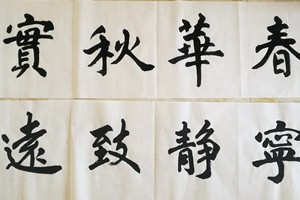 春華秋實
寧静致遠